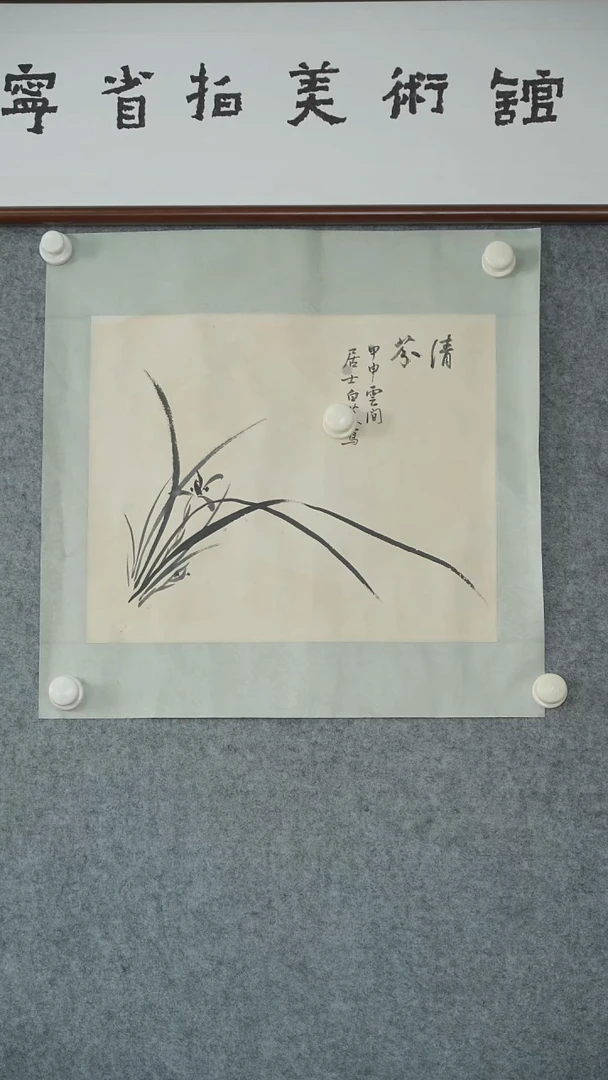 寧省拍美術館
清芬
甲申雲間
居士白